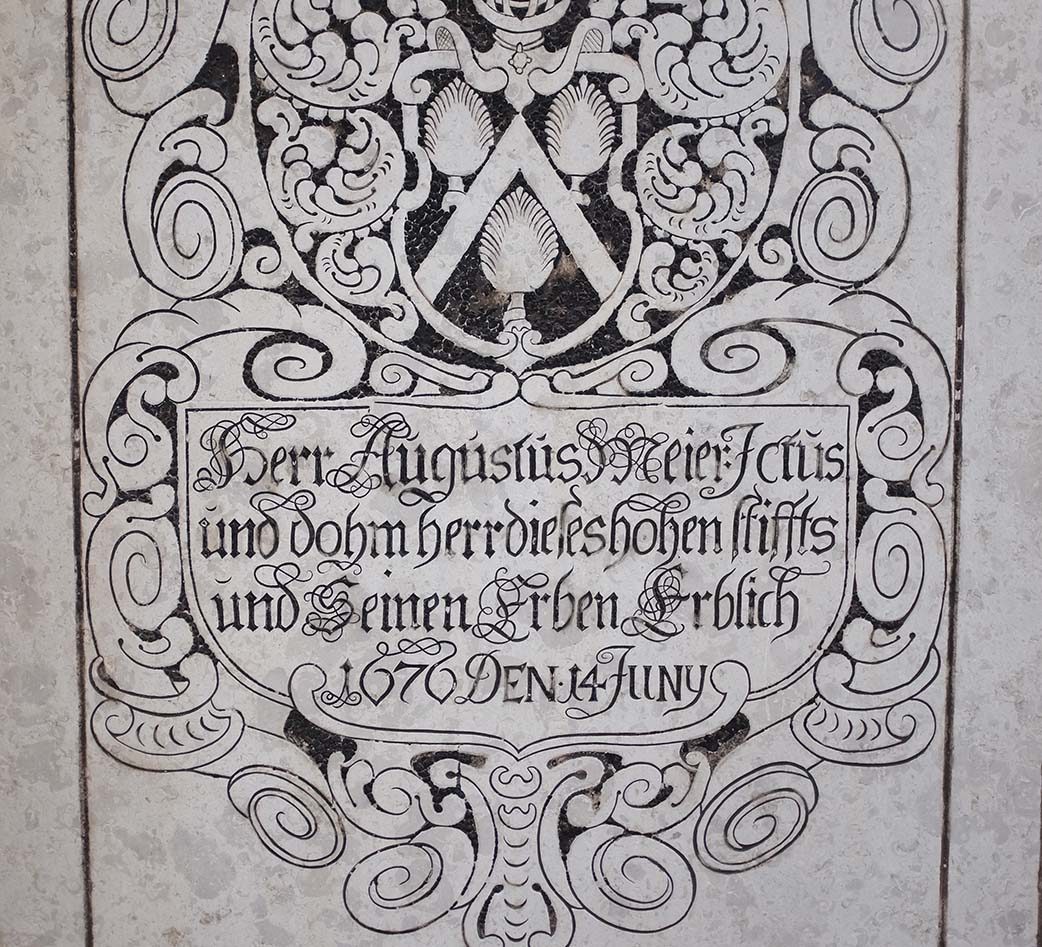 Herr Augustus Meier: Ictus
und dohm herr dieses hohen stiffts
und Seinen Erben Erblich
1676 DEN · 14 · JUNY